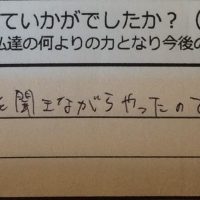 ていかがでしたか？（
私達の何よりの力となり今後の
を聞きながらやったので